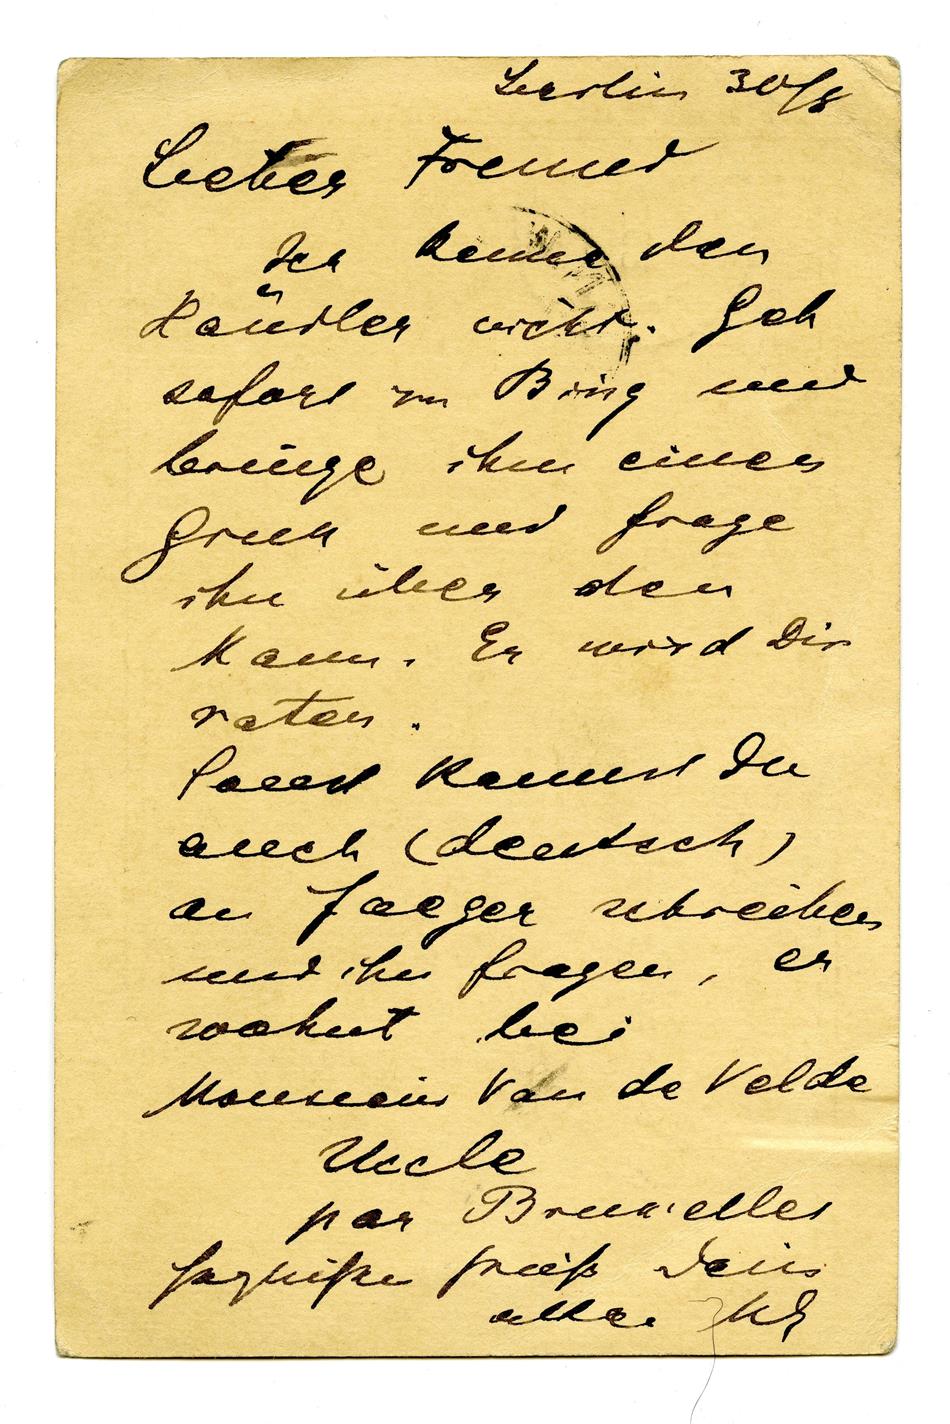 Berlin 30/8
Lieber Freund
Ich kenne den
Händler nicht. Geh
sofort zu Bing und
bringe ihm einen
Gruss und frage
ihn über den
Mann. Er wird Dir
raten.
Sonst kannst Du
auch (deutsch)
an Jaeger schreiben
und ihn fragen, er
wohnt bei
Monsieur Van de Velde
Uccle
par Bruxelles
Dein